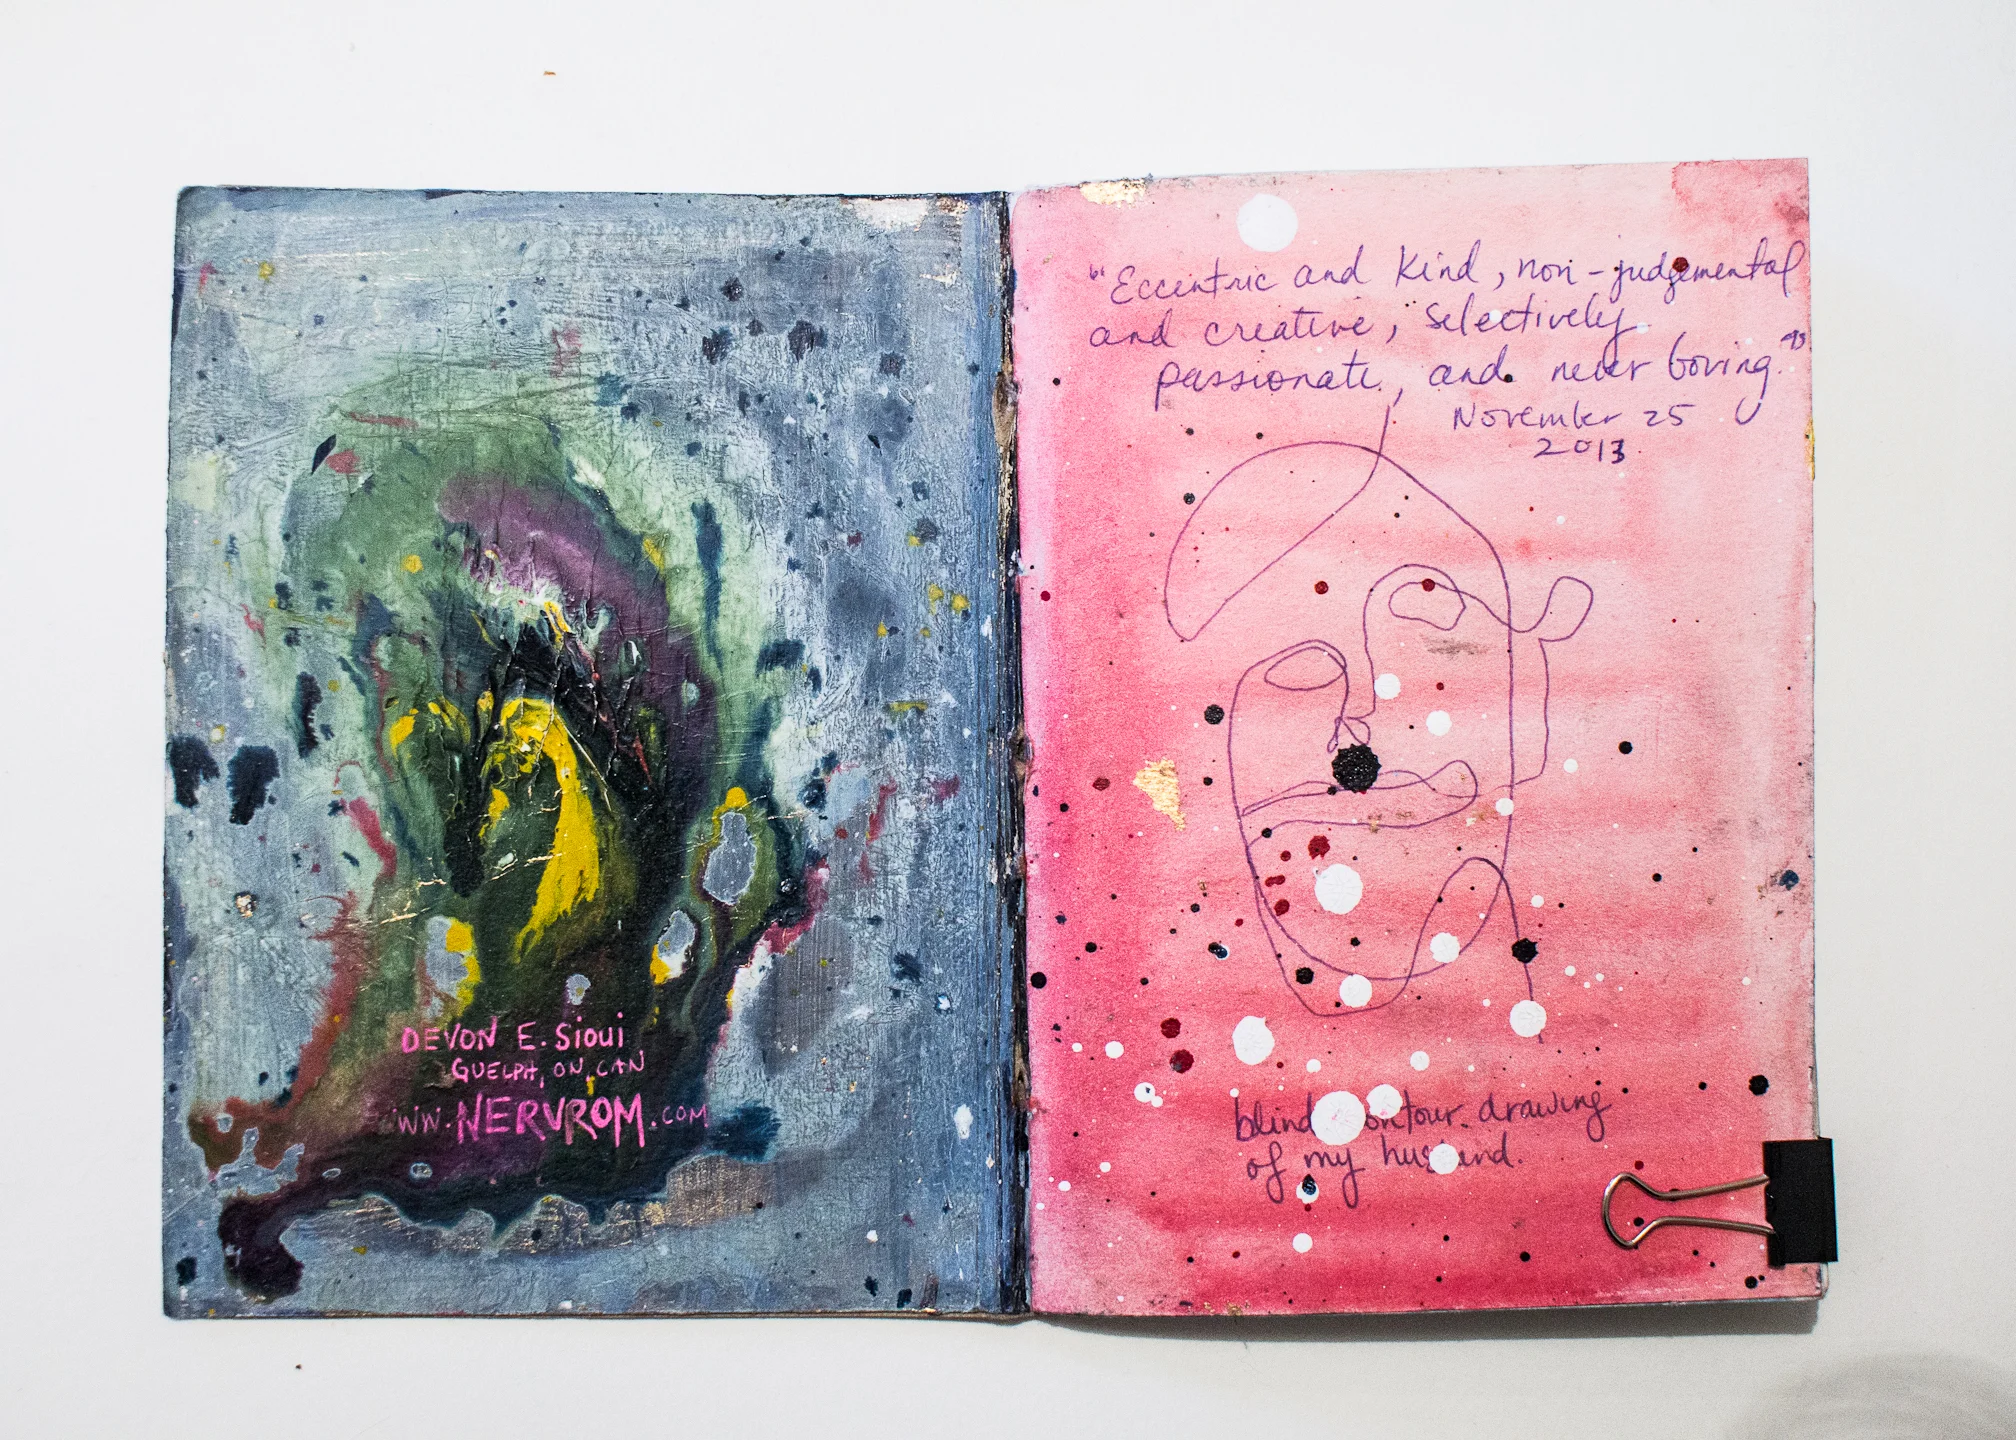 DEVON E. Sioui
GUELPH, ON, CAN
WWW.NERVROM.COM
"Eccentric and kind, non-judgemental
and creative, selectively
passionate, and never boring."
November 25
2013
blind contour drawing
of my husband.